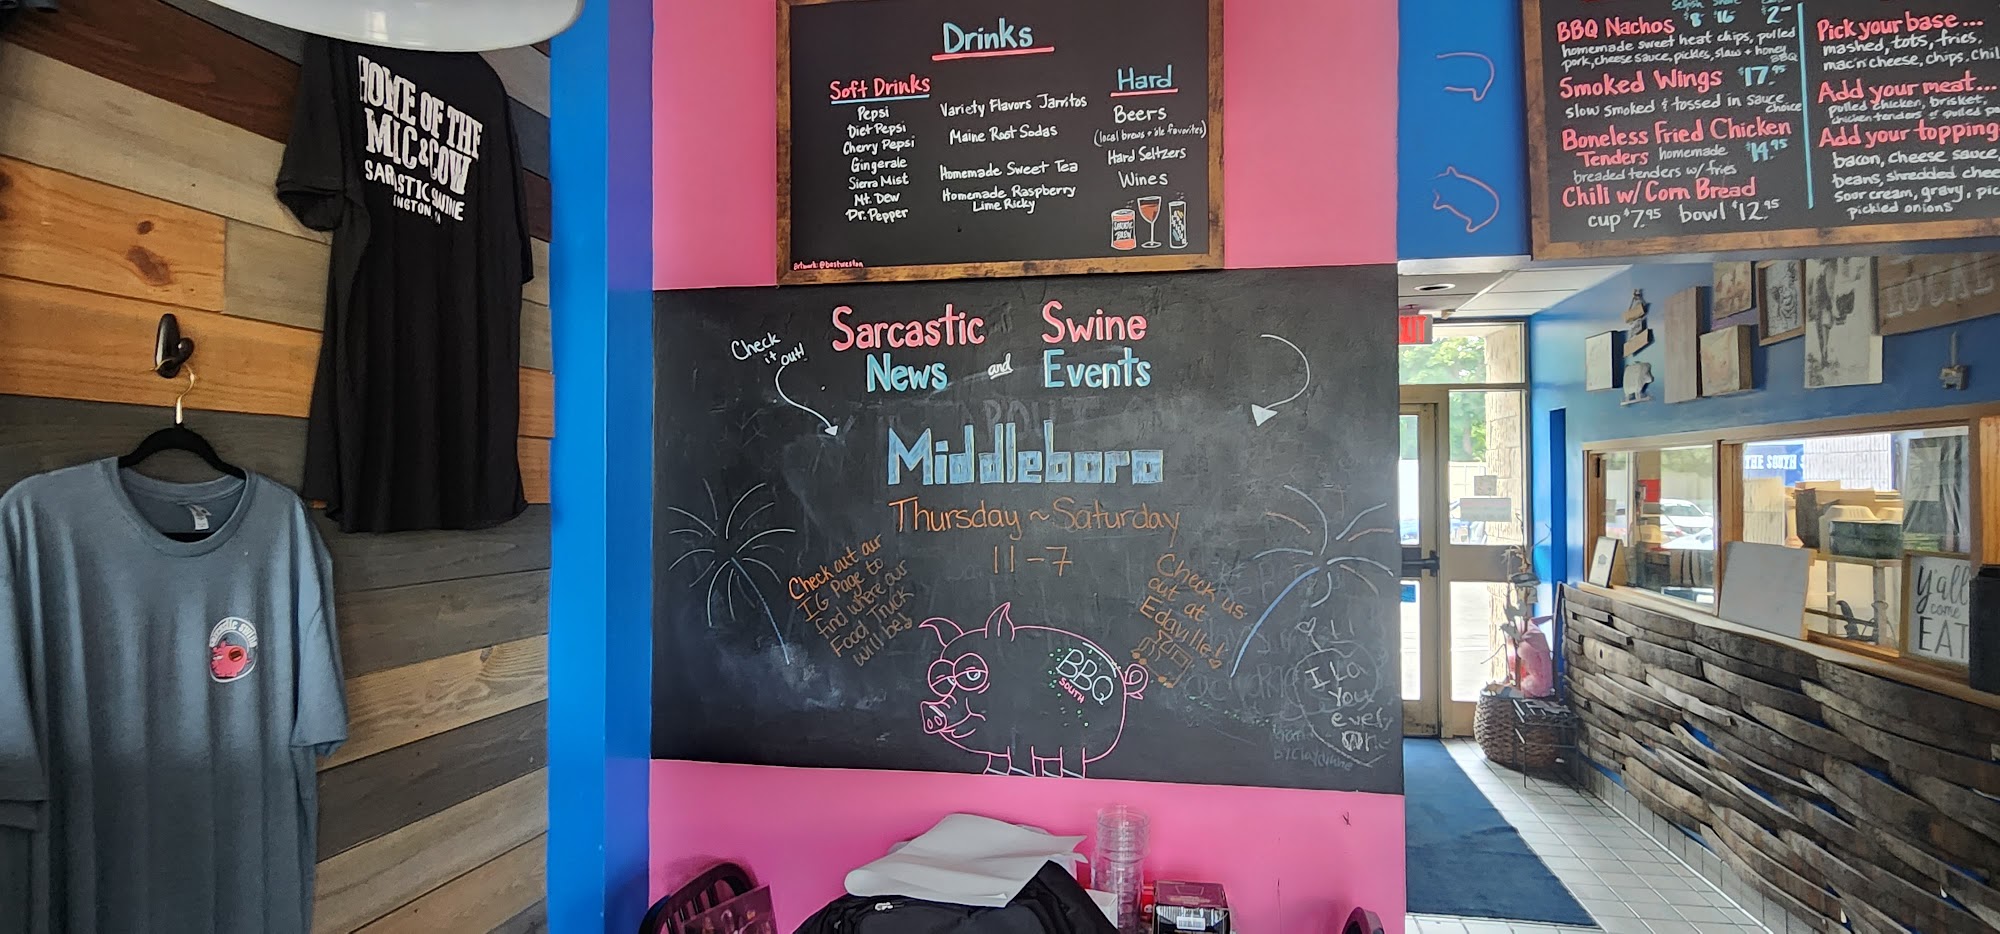 HOME OF THE
MIC & COW
SARCASTIC SWINE
INGTON
sarcastic swine
Drinks
Soft Drinks
Pepsi
Diet Pepsi
Cherry Pepsi
Gingerale
Sierra Mist
Mt. Dew
Dr. Pepper
Variety Flavors Jarritos
Maine Root Sodas
Homemade Sweet Tea
Homemade Raspberry
Lime Ricky
Hard
Beers
(local brews + ole favorites)
Hard Seltzers
Wines
Artwork: @bostweston
Check
it out!
Sarcastic Swine
News and Events
Middleboro
Thursday ~ Saturday
11-7
Check out our
IG Page to
find where our
Food Truck
will be!
Check us
out at
Edaville!
BBQ
SOUTH
I Love
You
every
one
BBQ Nachos $8 $16 $2
homemade sweet heat chips, pulled
pork, cheese sauce, pickles, slaw + honey
BBQ
Smoked Wings $17.95
slow smoked & tossed in sauce
choice
Boneless Fried Chicken
Tenders homemade $14.95
breaded tenders w/ fries
Chili w/ Corn Bread
cup $7.95 bowl $12.95
Pick your base...
mashed, tots, fries,
mac'n cheese, chips, chil
Add your meat...
pulled chicken, brisket,
chicken tenders or pulled po
Add your topping
bacon, cheese sauce,
beans, shredded chee
sour cream, gravy, pic
pickled onions
EXIT
LOCAL
THE SOUTH S
y'all
come
EAT